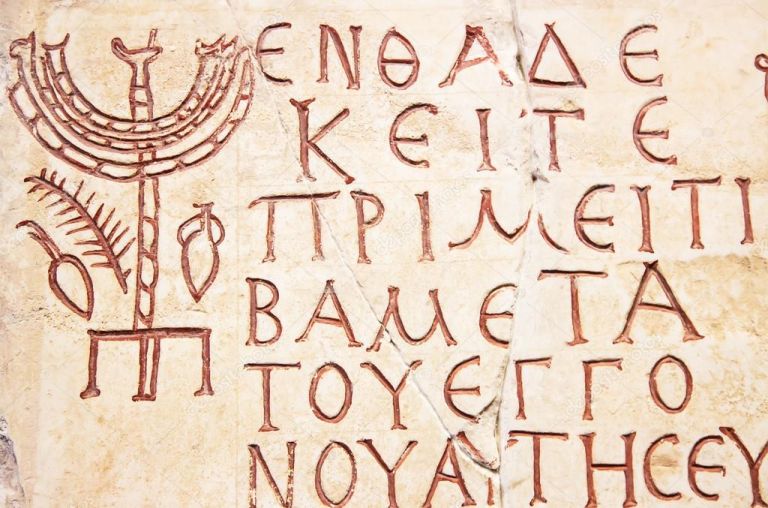 ΕΝΘΑΔΕ
ΚΕΙΤΕ
ΠΡΙΜΕΙΤΙ
ΒΑΜΕΤΑ
ΤΟΥΕΓΓΟ
ΝΟΥΑΤΗϹΕΥ